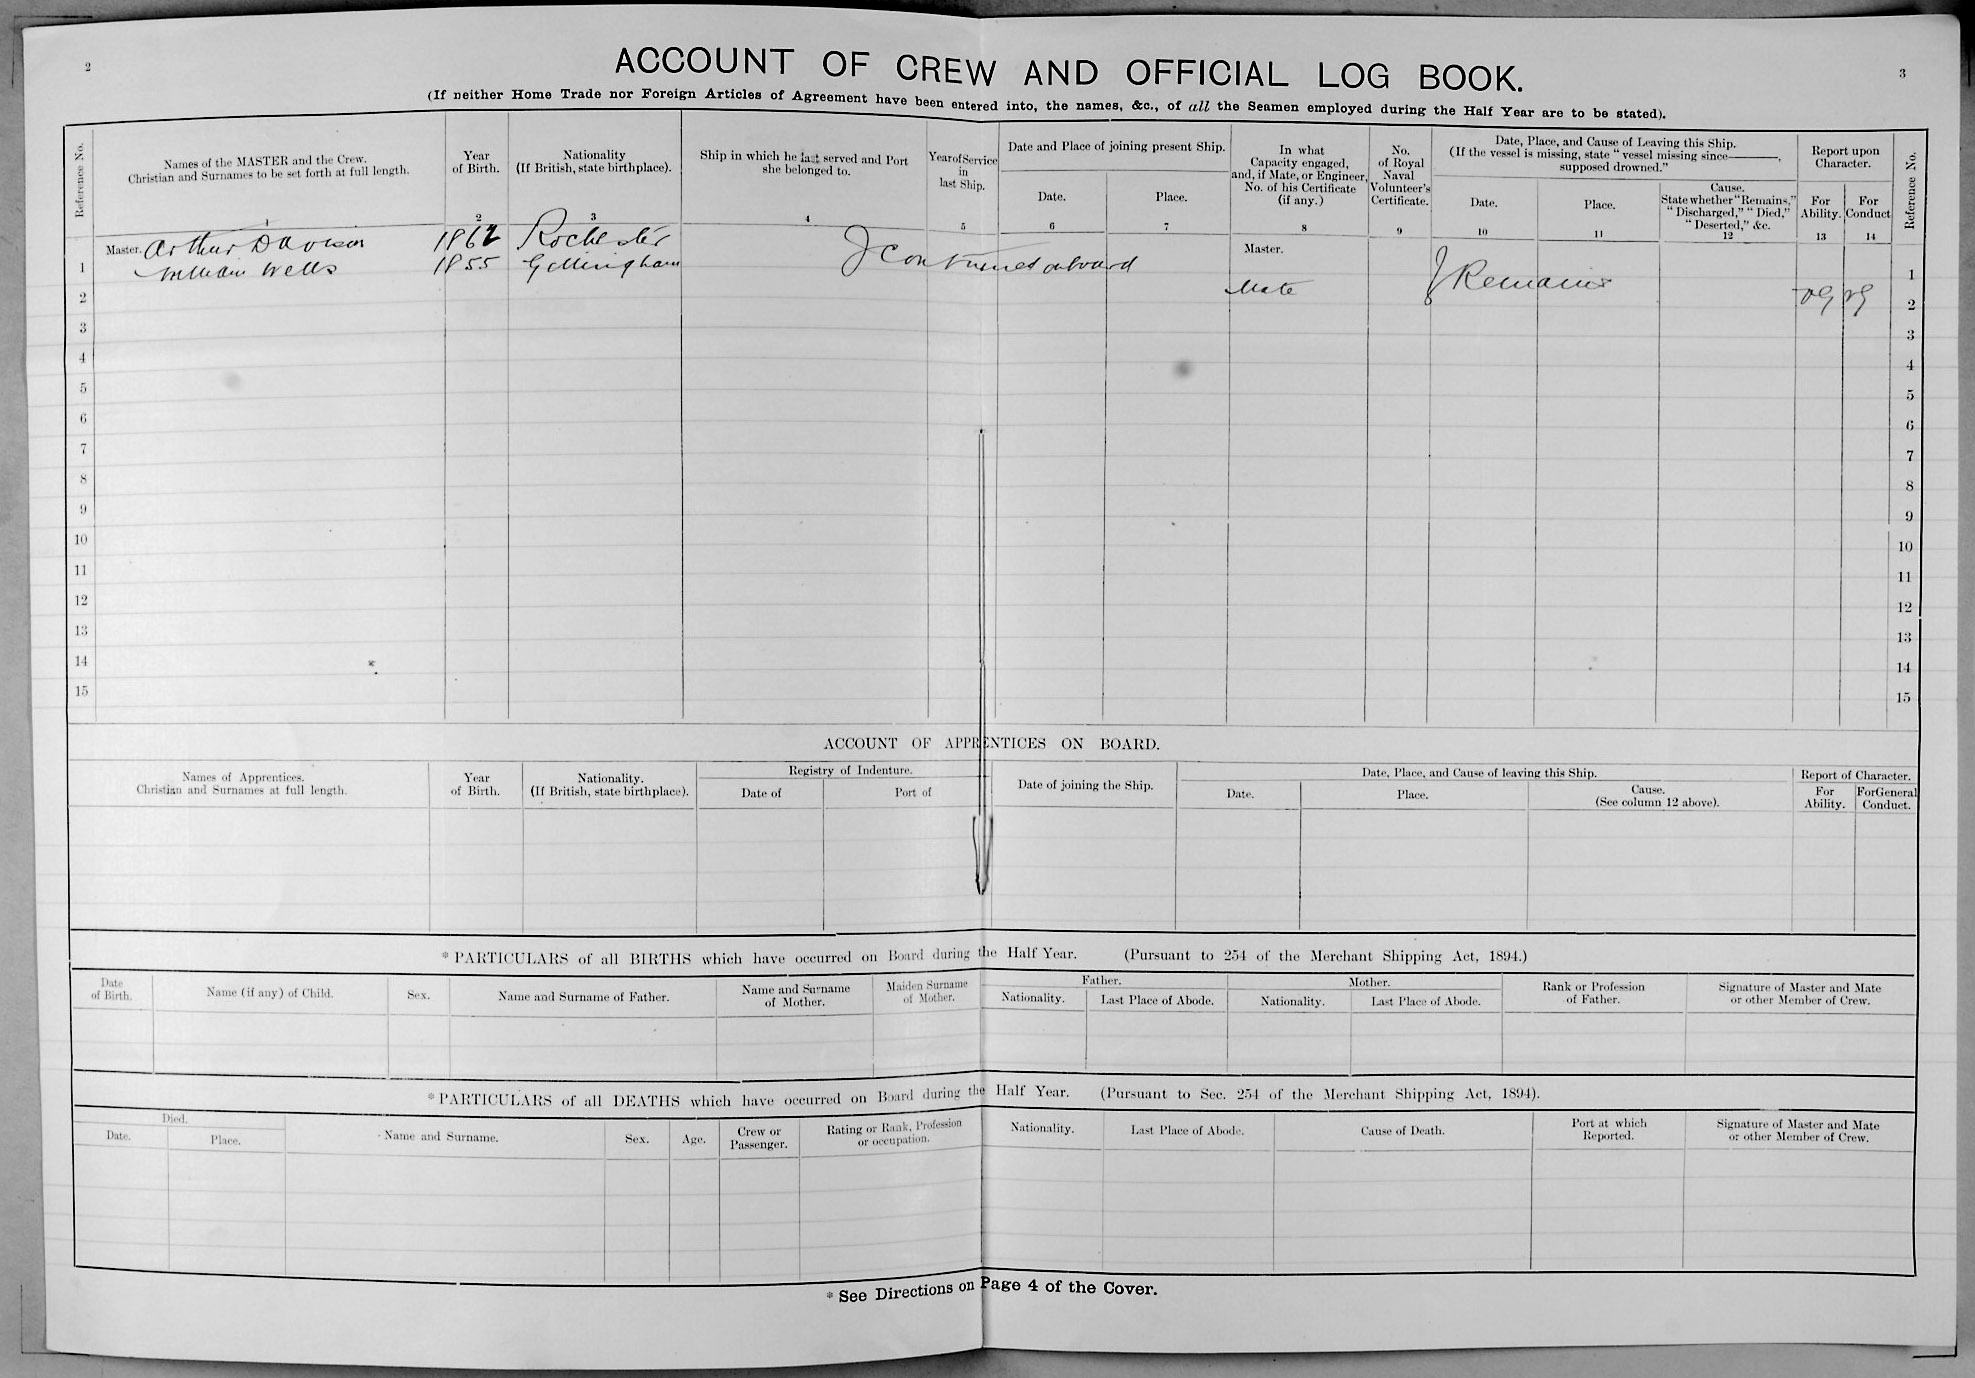 2
3
ACCOUNT OF CREW AND OFFICIAL LOG BOOK.
(If neither Home Trade nor Foreign Articles of Agreement have been entered into, the names, &c., of all the Seamen employed during the Half Year are to be stated).
Reference No.
Names of the MASTER and the Crew.
Christian and Surnames to be set forth at full length.
1
Year
of Birth.
2
Nationality
(If British, state birthplace).
3
Ship in which he last served and Port
she belonged to.
4
Year of Service
in
last Ship.
5
Date and Place of joining present Ship.
Date.
6
Place.
7
In what
Capacity engaged,
and, if Mate, or Engineer,
No. of his Certificate
(if any.)
8
No.
of Royal
Naval
Volunteer's
Certificate.
9
Date, Place, and Cause of Leaving this Ship.
(If the vessel is missing, state "vessel missing since———,
supposed drowned."
Date.
10
Place.
11
Cause.
State whether "Remains,"
"Discharged," "Died,"
"Deserted," &c.
12
Report upon
Character.
For
Ability.
13
For
Conduct
14
Reference No.
Master. Arthur Davison 1862 Rochester Continued onboard Master.
1 William Wells 1855 Gillingham Mate Remains VG VG 1
2 2
3 3
4 4
5 5
6 6
7 7
8 8
9 9
10 10
11 11
12 12
13 13
14 14
15 15
ACCOUNT OF APPRENTICES ON BOARD.
Names of Apprentices.
Christian and Surnames at full length.
Year
of Birth.
Nationality.
(If British, state birthplace).
Registry of Indenture.
Date of
Port of
Date of joining the Ship.
Date, Place, and Cause of leaving this Ship.
Date.
Place.
Cause.
(See column 12 above).
Report of Character.
For
Ability.
For General
Conduct.
* PARTICULARS of all BIRTHS which have occurred on Board during the Half Year. (Pursuant to 254 of the Merchant Shipping Act, 1894.)
Date
of Birth.
Name (if any) of Child.
Sex.
Name and Surname of Father.
Name and Surname
of Mother.
Maiden Surname
of Mother.
Father.
Nationality.
Last Place of Abode.
Mother.
Nationality.
Last Place of Abode.
Rank or Profession
of Father.
Signature of Master and Mate
or other Member of Crew.
* PARTICULARS of all DEATHS which have occurred on Board during the Half Year. (Pursuant to Sec. 254 of the Merchant Shipping Act, 1894).
Died.
Date.
Place.
Name and Surname.
Sex.
Age.
Crew or
Passenger.
Rating or Rank, Profession
or occupation.
Nationality.
Last Place of Abode.
Cause of Death.
Port at which
Reported.
Signature of Master and Mate
or other Member of Crew.
* See Directions on Page 4 of the Cover.